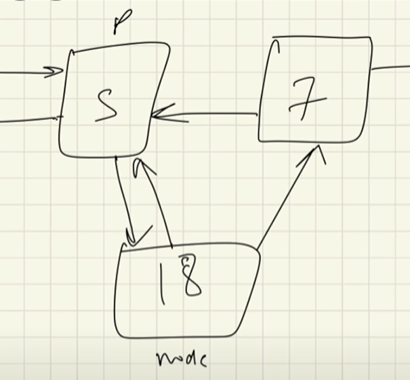 P
5
7
18
node